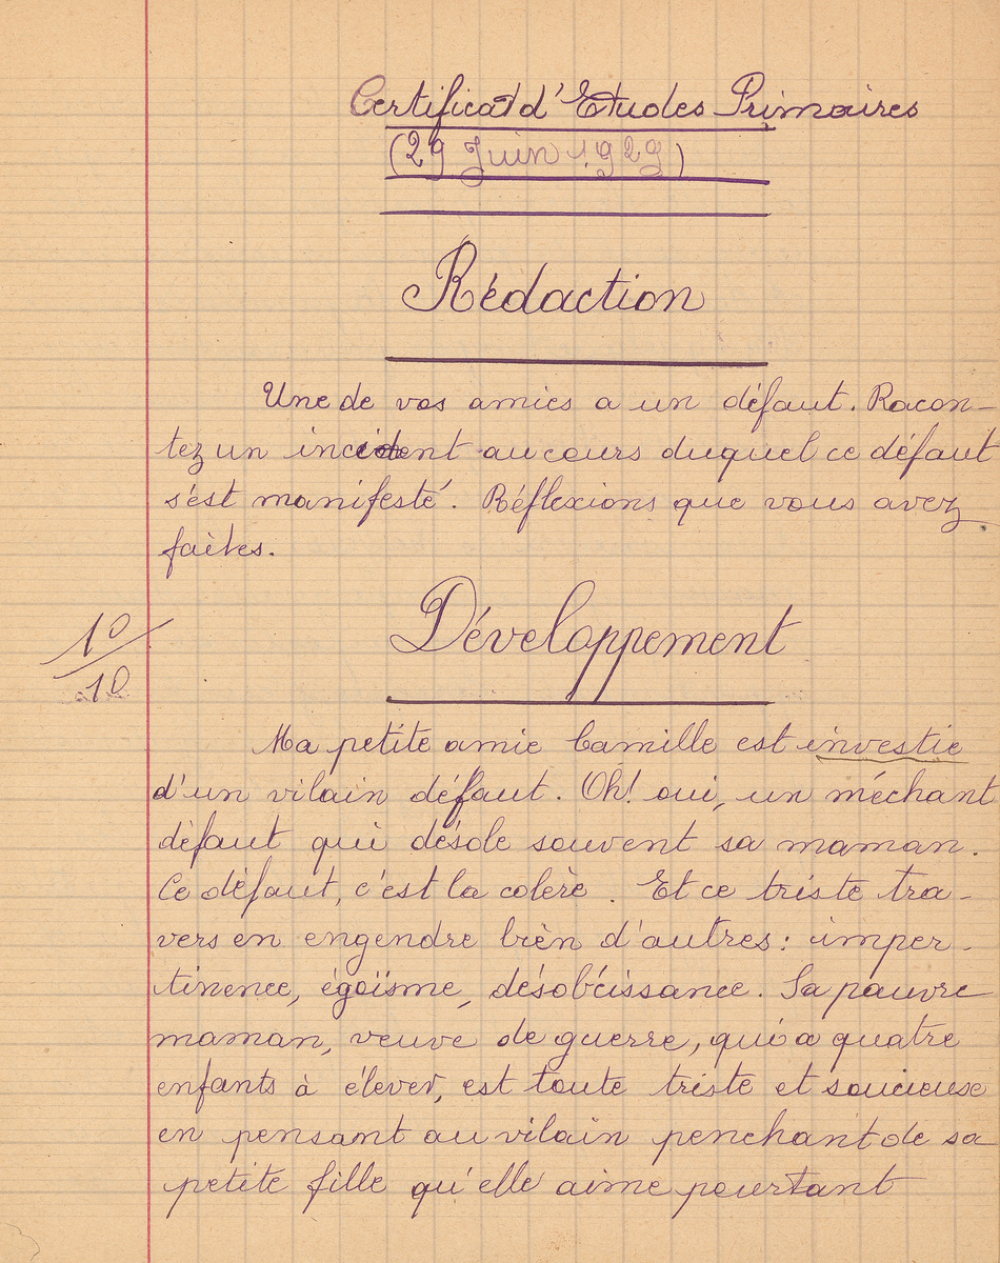 Certificat d'Etudes Primaires
(29 Juin 1929)
Rédaction
Une de vos amies a un défaut. Racon-
tez un incident au cours duquel ce défaut
s'est manifesté. Réflexions que vous avez
faites.
10/10
Développement
Ma petite amie Camille est investie
d'un vilain défaut. Oh! oui, un méchant
défaut qui désole souvent sa maman.
Ce défaut, c'est la colère. Et ce triste tra-
vers en engendre bien d'autres: imper-
tinence, égoïsme, désobéissance. Sa pauvre
maman, veuve de guerre, qui a quatre
enfants à élever, est toute triste et soucieuse
en pensant au vilain penchant de sa
petite fille qu'elle aime pourtant